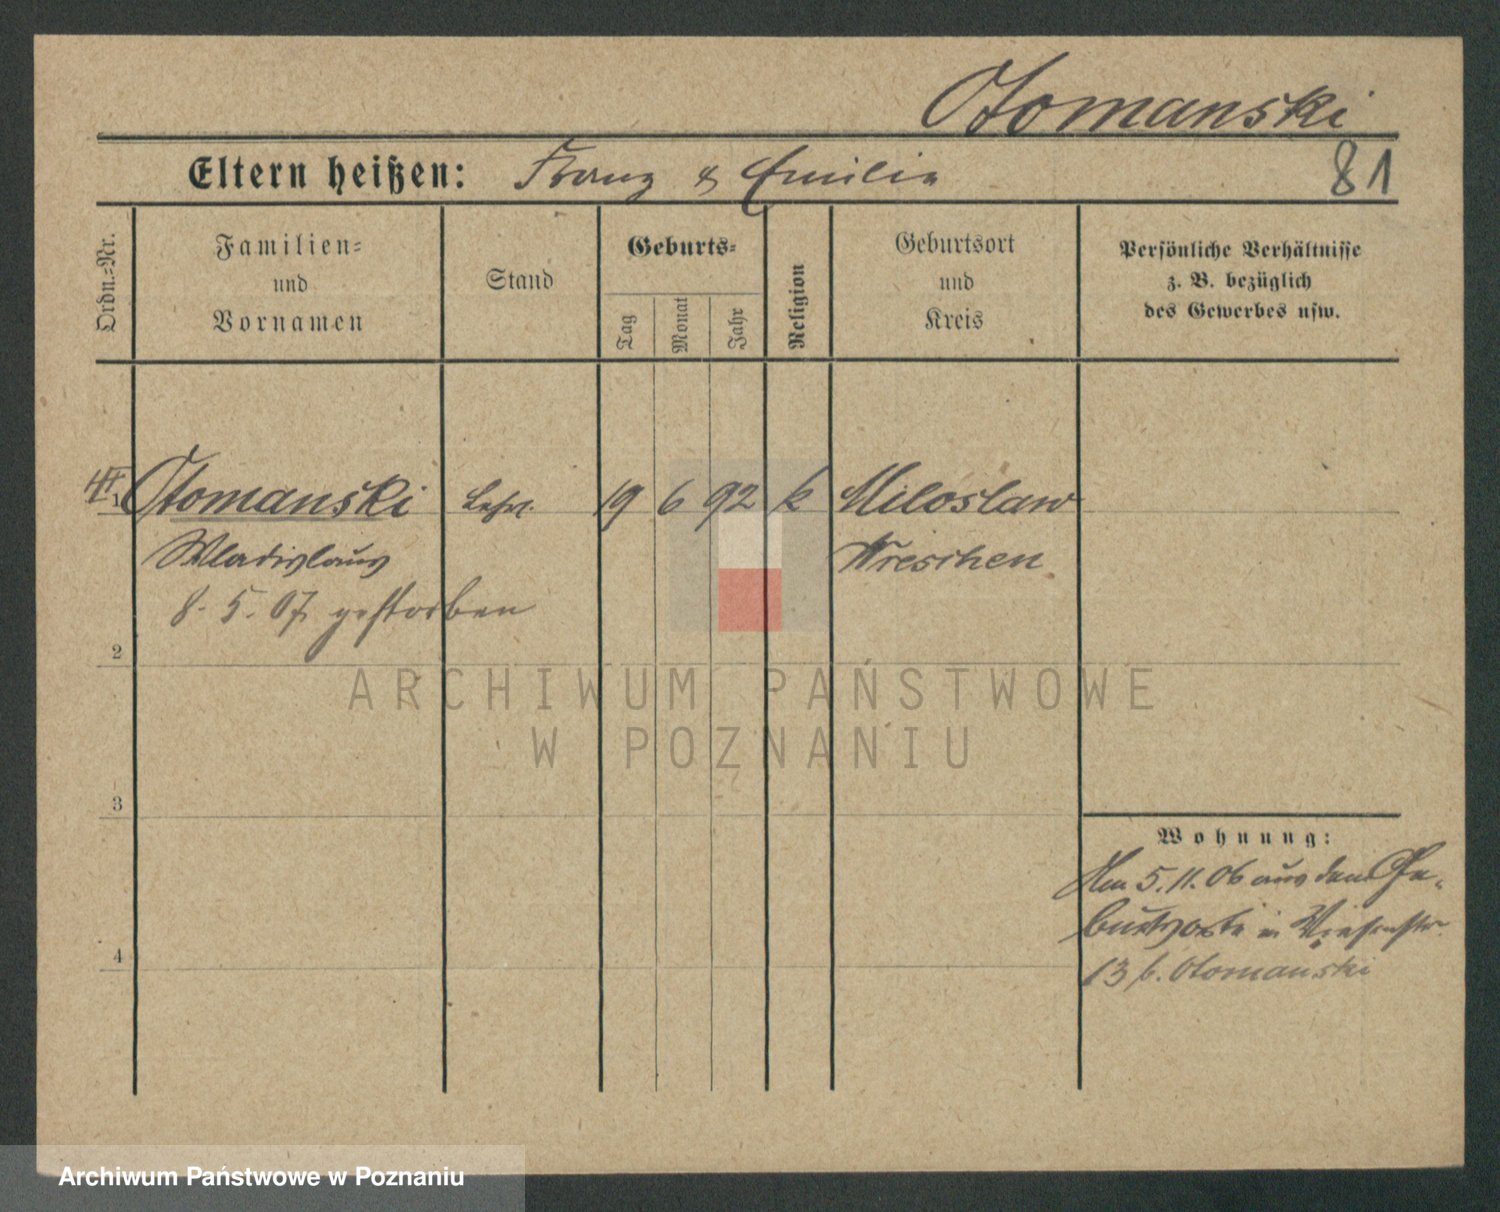 Otomanski
Eltern heißen: Franz & Emilia
81
Ordn.=Nr.
Familien=
und
Vornamen
Stand
Geburts=
Tag
Monat
Jahr
Religion
Geburtsort
und
Kreis
Persönliche Verhältnisse
z. B. bezüglich
des Gewerbes usw.
1 Otomanski Lehrl. 19 6 92 k Miloslaw
Wladislaus Wreschen
8. 5. 07 gestorben
2
3
4
Wohnung:
Am 5.11.06 aus dem Ge-
burtsorte in
13 b. Otomanski
ARCHIWUM PAŃSTWOWE
W POZNANIU
Archiwum Państwowe w Poznaniu